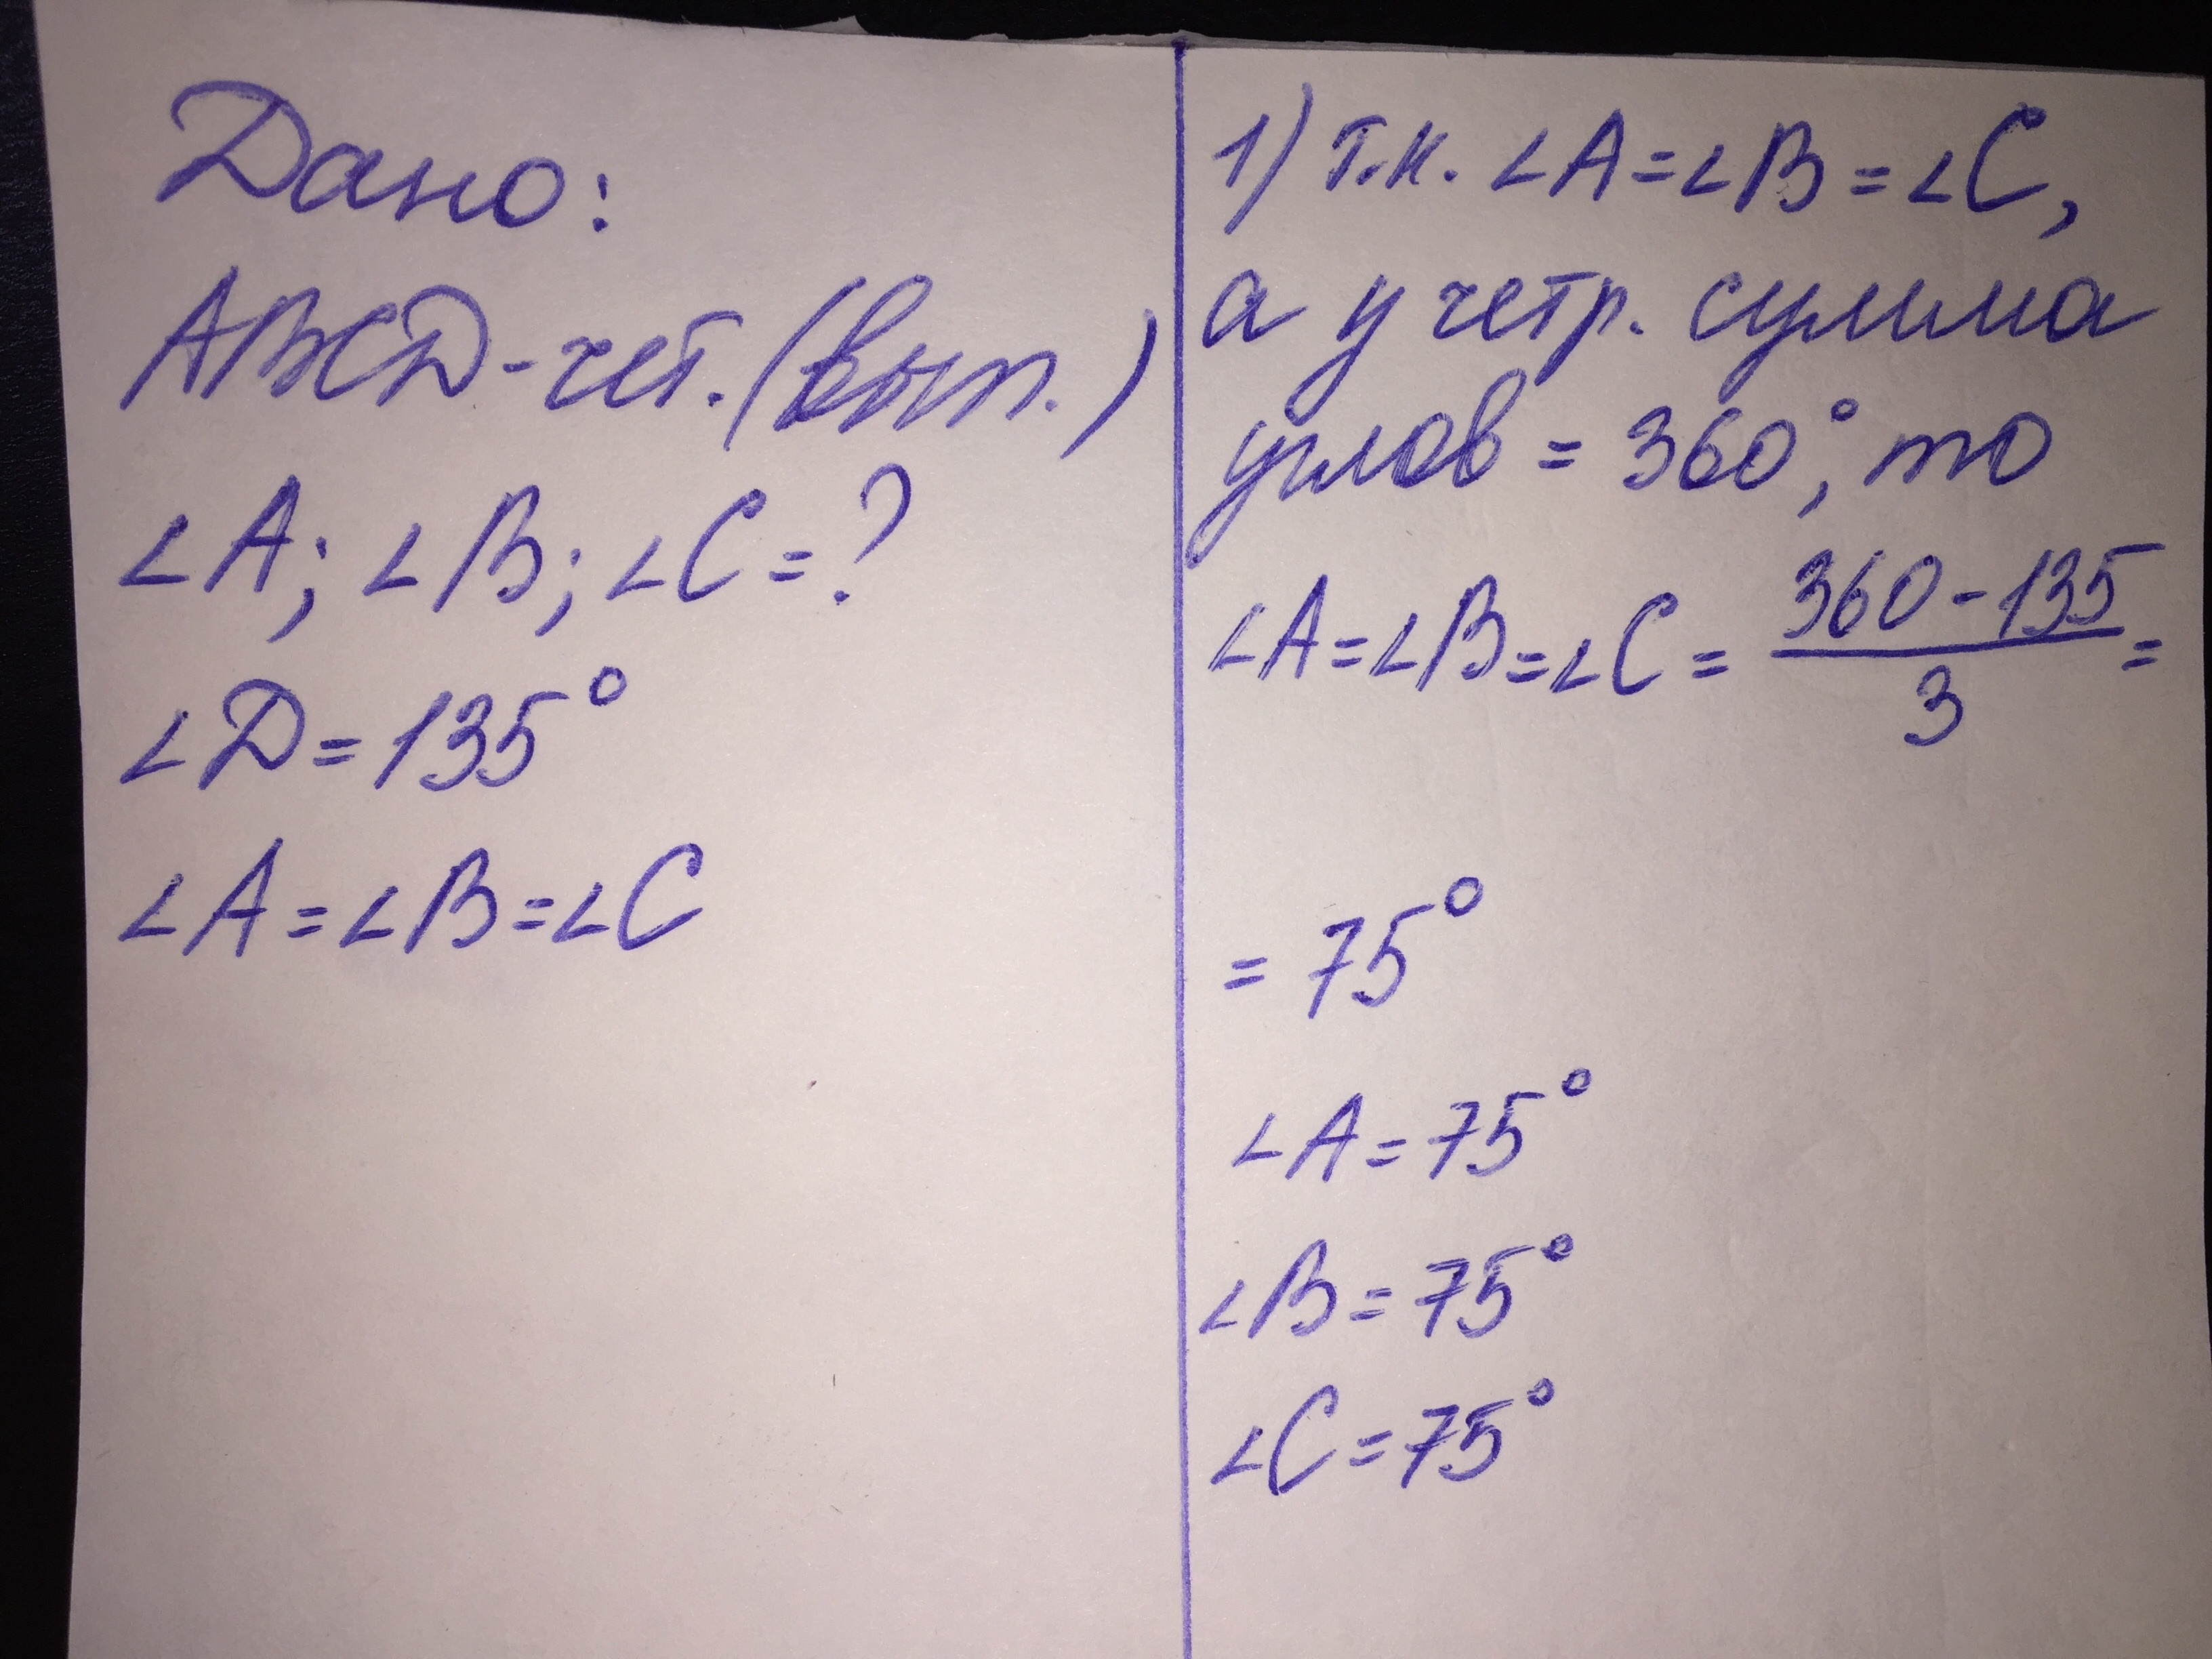 Дано:
ABCD-чет. (вып.)
∠A; ∠B; ∠C = ?
∠D = 135°
∠A = ∠B = ∠C
1) т.к. ∠A = ∠B = ∠C,
а у четр. сумма
углов = 360°, то
∠A = ∠B = ∠C = (360 - 135)/3 =
= 75°
∠A = 75°
∠B = 75°
∠C = 75°